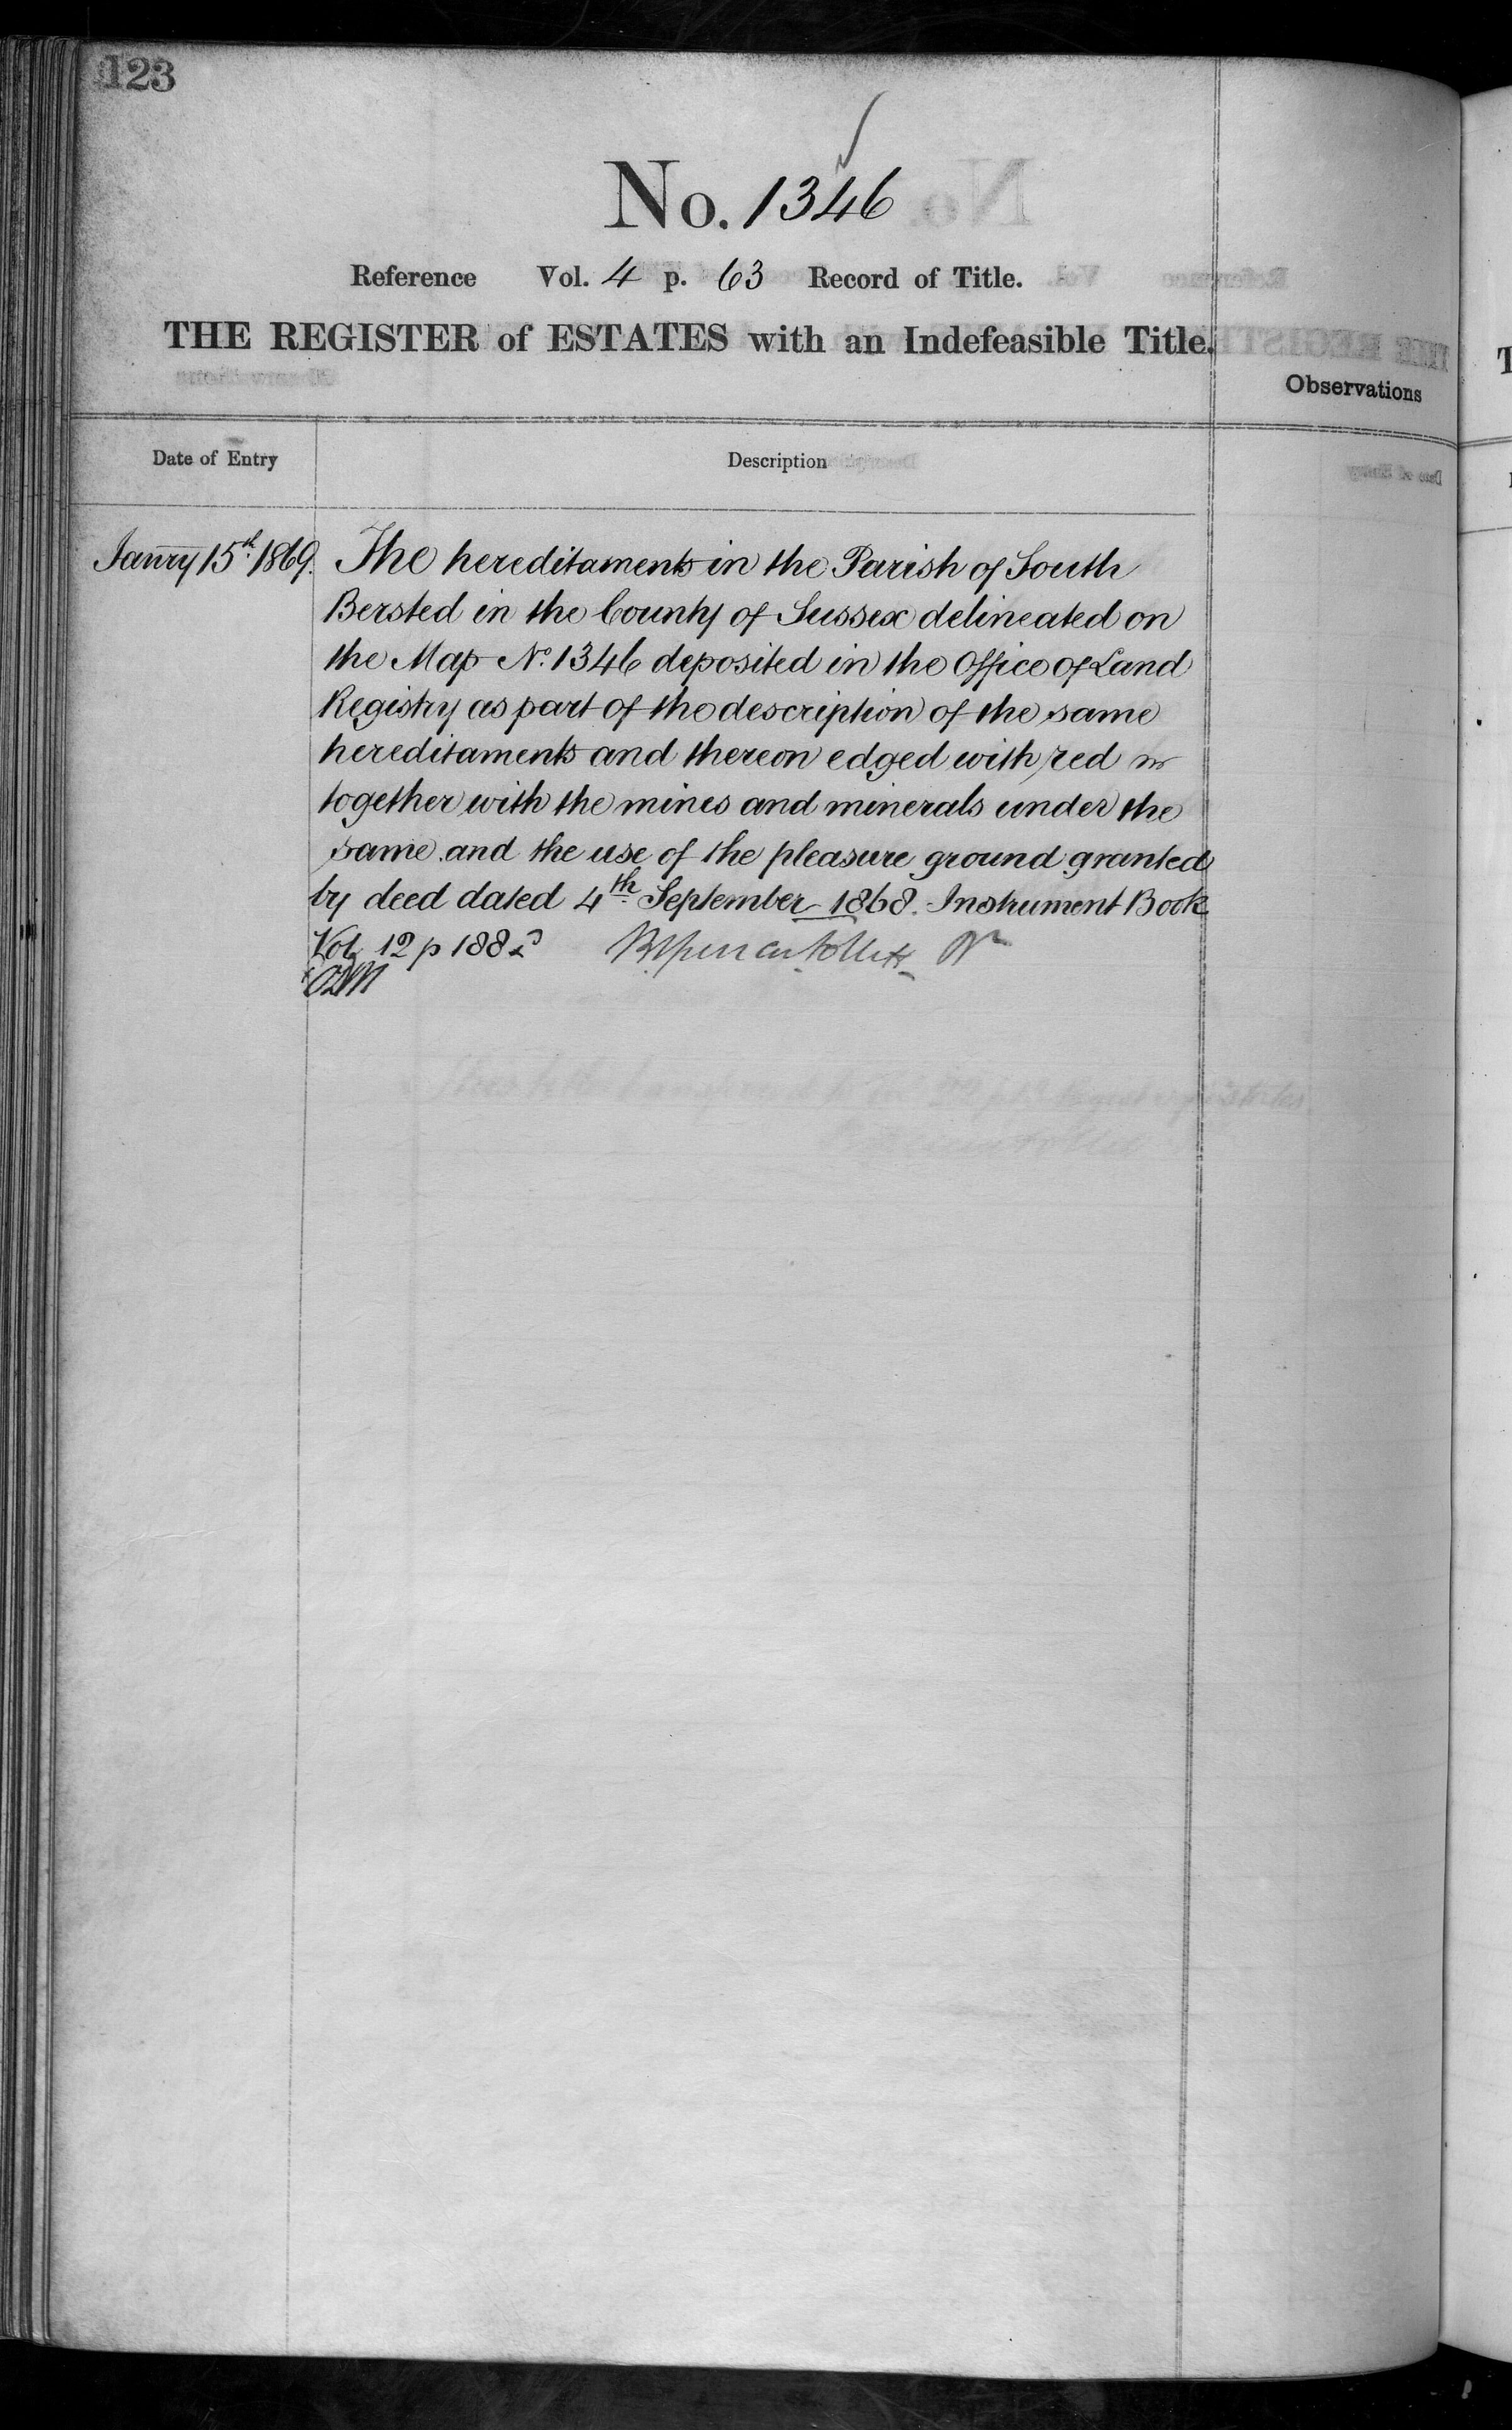 123
No. 1346
Reference Vol. 4 p. 63 Record of Title.
THE REGISTER of ESTATES with an Indefeasible Title.
Observations
Date of Entry
Description
Janry 15th 1869.
The hereditaments in the Parish of South
Bersted in the County of Sussex delineated on
the Map No. 1346 deposited in the Office of Land
Registry as part of the description of the same
hereditaments and thereon edged with red
together with the mines and minerals under the
same and the use of the pleasure ground granted
by deed dated 4th September 1868. Instrument Book
Vol 12 p 188